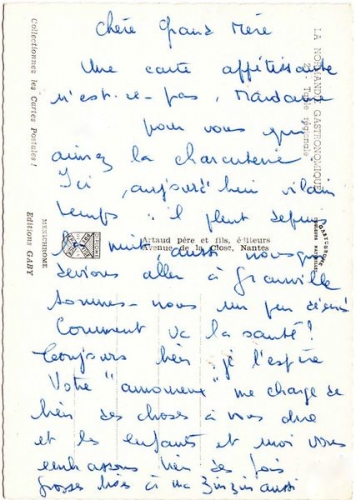 Chère Grand Mère
Une carte appétissante
n'est-ce-pas,
pour vous qui
aimez la charcuterie
Ici, aujourd'hui vilain
temps : il pleut depuis
la nuit, aussi nous qui
devions aller à Granville
sommes-nous un peu déçus
Comment va la santé !
Toujours bien je l'espère
Votre "amoureux" me charge de
bien des choses à vous dire
et les enfants et moi vous
embrassons bien des fois
grosses bises à ma Zinzin aussi
LA NORMANDIE GASTRONOMIQUE
Table régionale
Collectionnez les Cartes Postales !
MEXICHROME
Editions GABY
Artaud père et fils, éditeurs
Avenue de la Close, Nantes